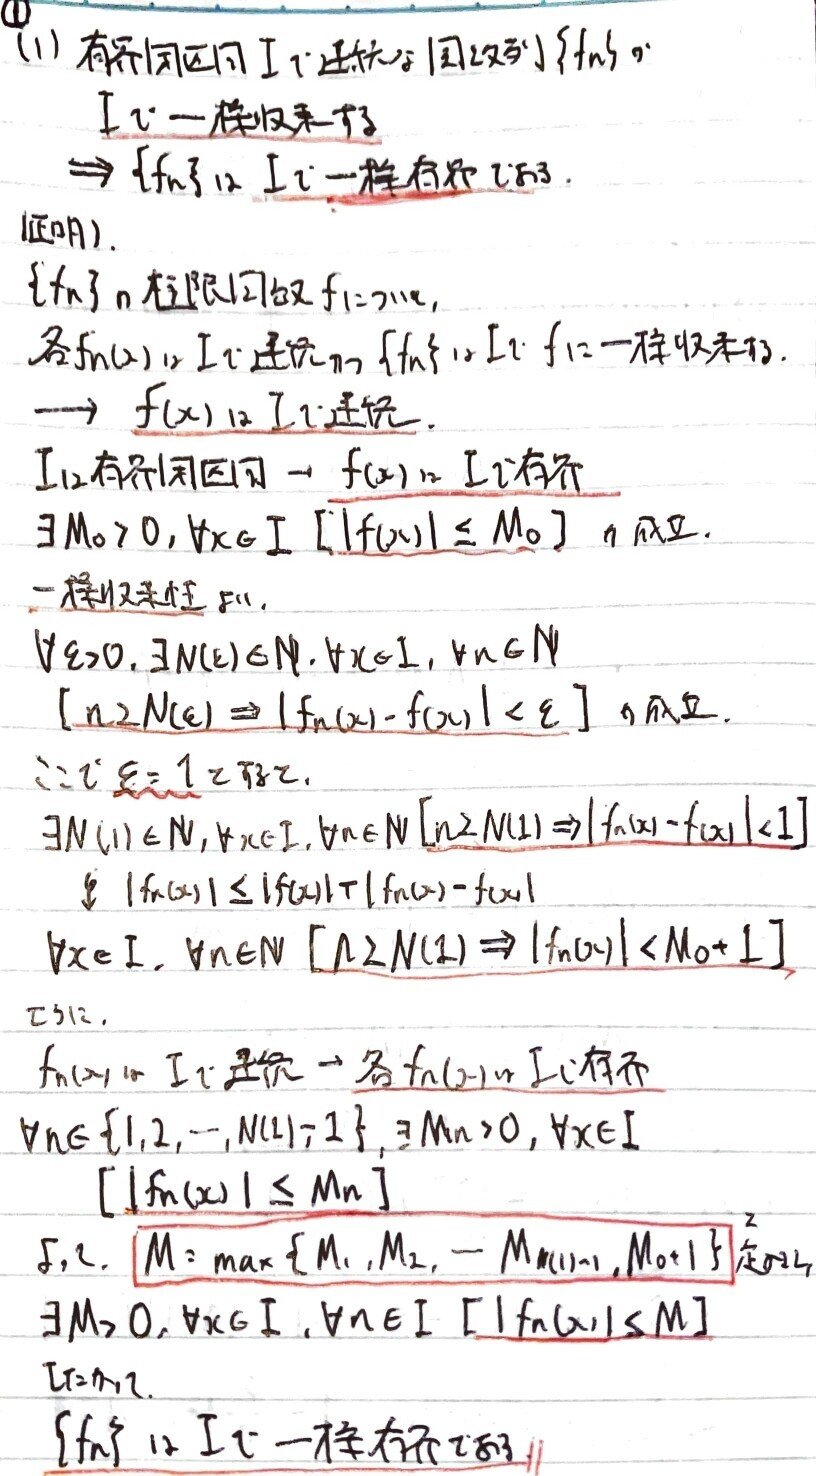 ①
(1) 有界閉区間 I で連続な関数列 {fn} が
I で一様収束する
⇒ {fn} は I で一様有界である.
証明).
{fn} の極限関数 f について,
各fn(x) は I で連続かつ {fn} は I で f に一様収束する.
→ f(x) は I で連続.
I は有界閉区間 → f(x) は I で有界
∃M₀>0, ∀x∈I [|f(x)| ≤ M₀] が成立.
一様収束性より.
∀ε>0. ∃N(ε)∈ℕ. ∀x∈I, ∀n∈ℕ
[n≥N(ε) ⇒ |fn(x)-f(x)| < ε] が成立.
ここで ε=1 とすると.
∃N(1)∈ℕ, ∀x∈I. ∀n∈ℕ [n≥N(1) ⇒ |fn(x)-f(x)|<1]
|fn(x)| ≤ |f(x)|+|fn(x)-f(x)|
∀x∈I. ∀n∈ℕ [n≥N(1) ⇒ |fn(x)| < M₀+1]
さらに.
fn(x) は I で連続 → 各 fn(x) は I で有界
∀n∈{1,2,…,N(1)-1}, ∃Mn>0, ∀x∈I
[|fn(x)| ≤ Mn]
よって. M = max{M₁,M₂,… M_{N(1)-1},M₀+1} と定めると
∃M>0, ∀x∈I, ∀n∈I [|fn(x)|≤M]
したがって.
{fn} は I で一様有界である //